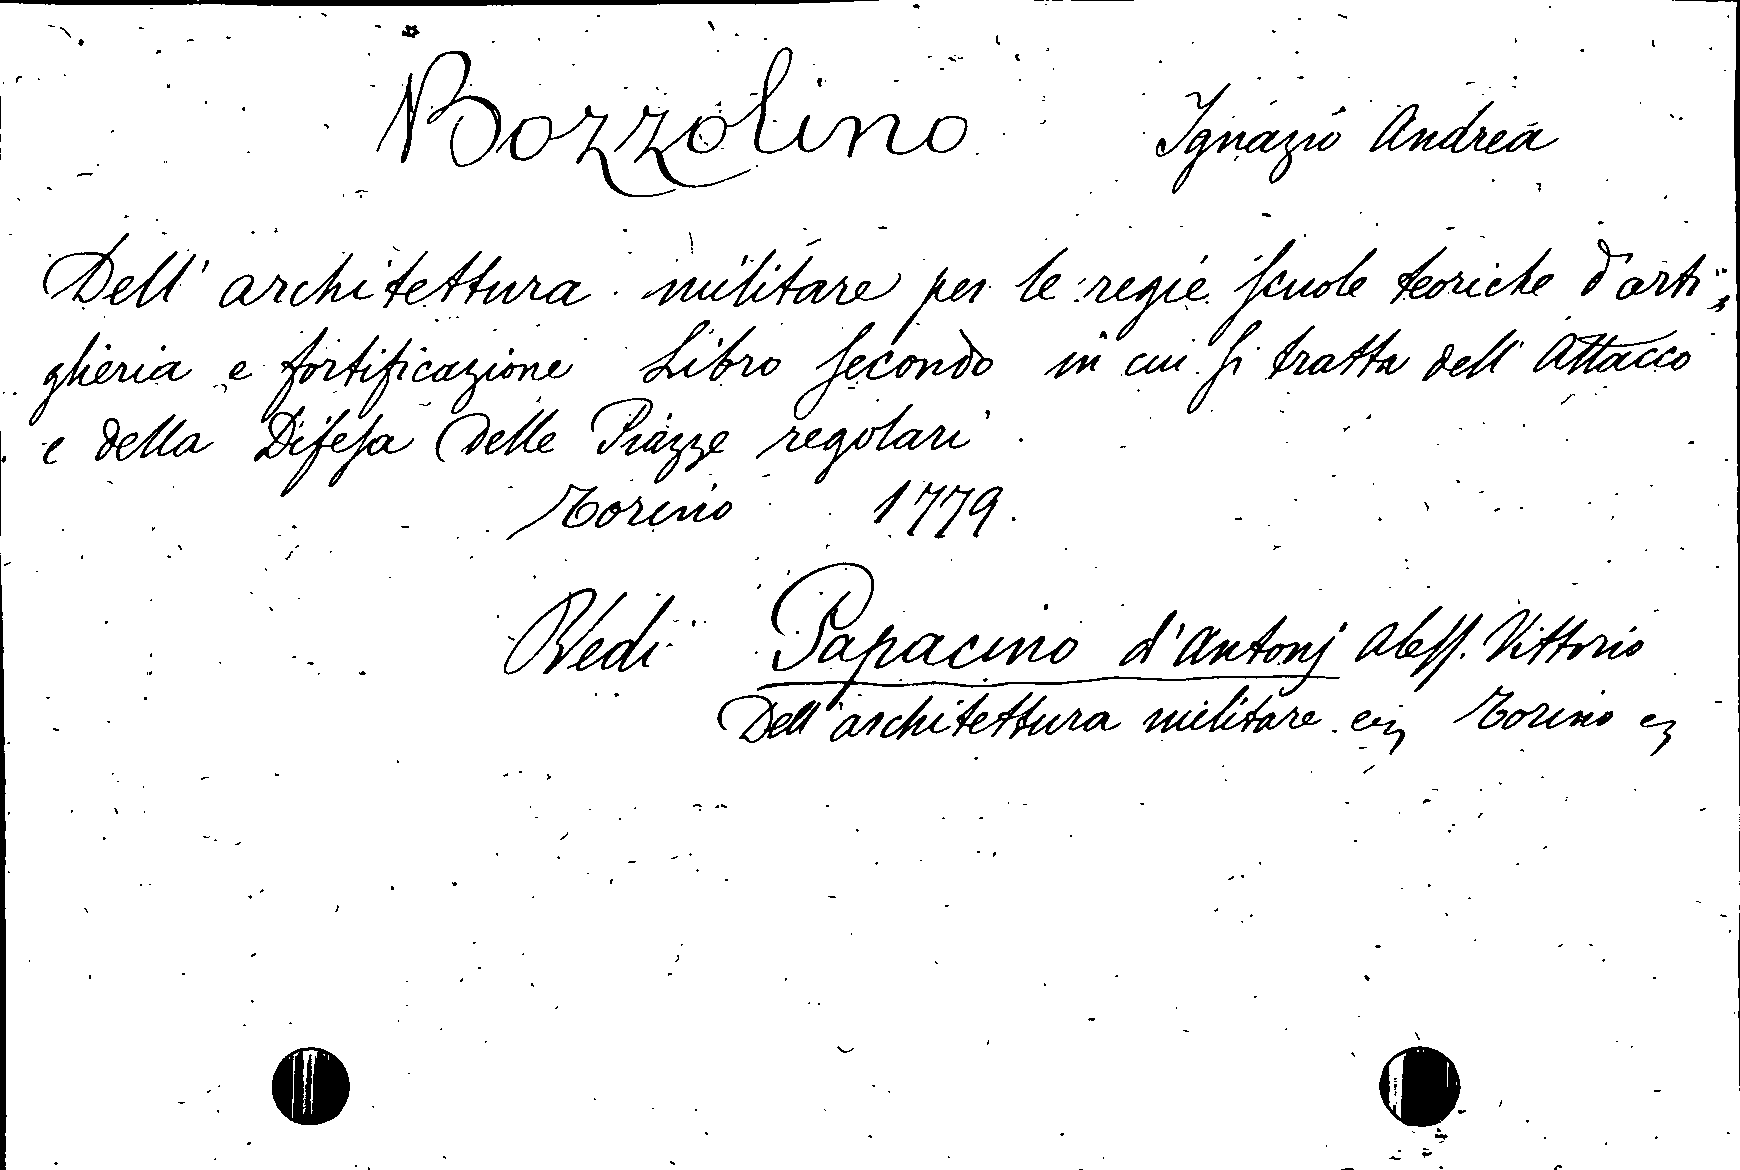 Bozzolino Ignazio Andrea
Dell' architettura militare per le regie scuole teoriche d'arti=
glieria e fortificazione Libro secondo in cui si tratta dell' Attacco
e della Difesa delle Piazze regolari
Torino 1779.
Vedi Papacino d'Antonj Aless. Vittorio
Dell' architettura militare Torino